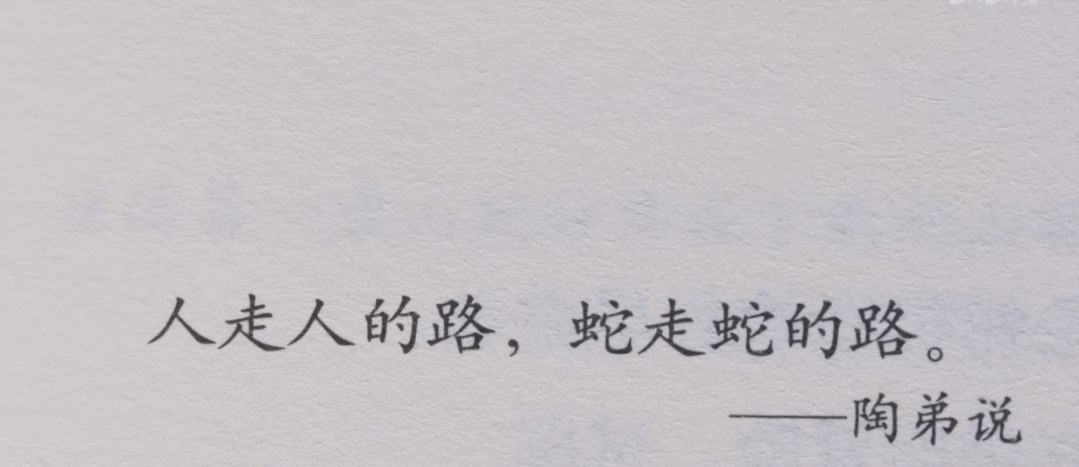 人走人的路，蛇走蛇的路。
——陶弟说